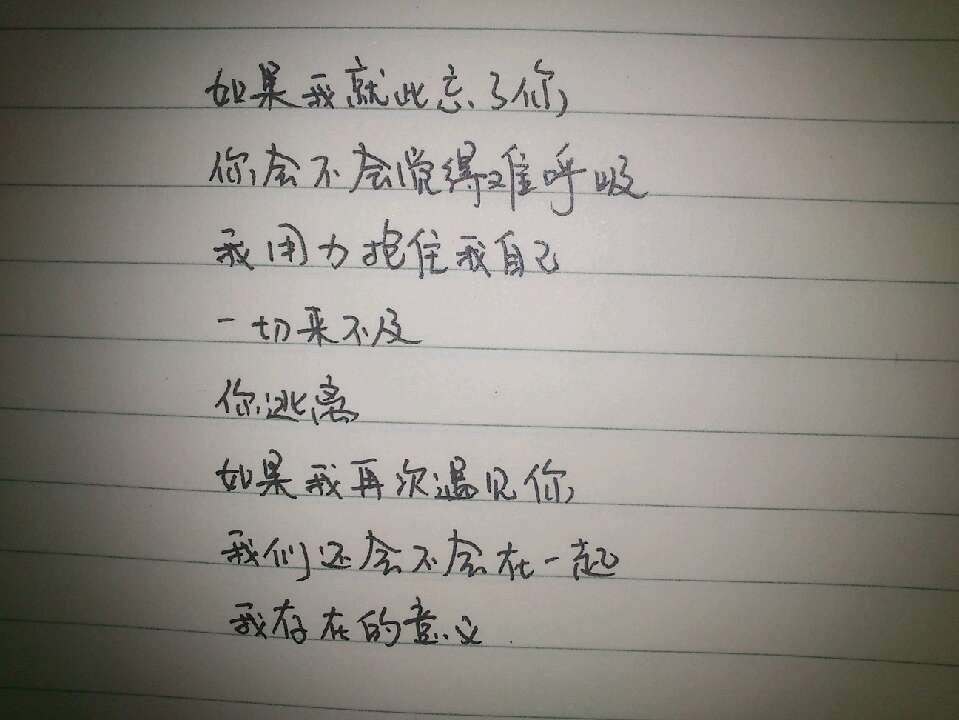 如果我就此忘了你
你会不会觉得难呼吸
我用力抱住我自己
一切来不及
你逃离
如果我再次遇见你
我们还会不会在一起
我存在的意义